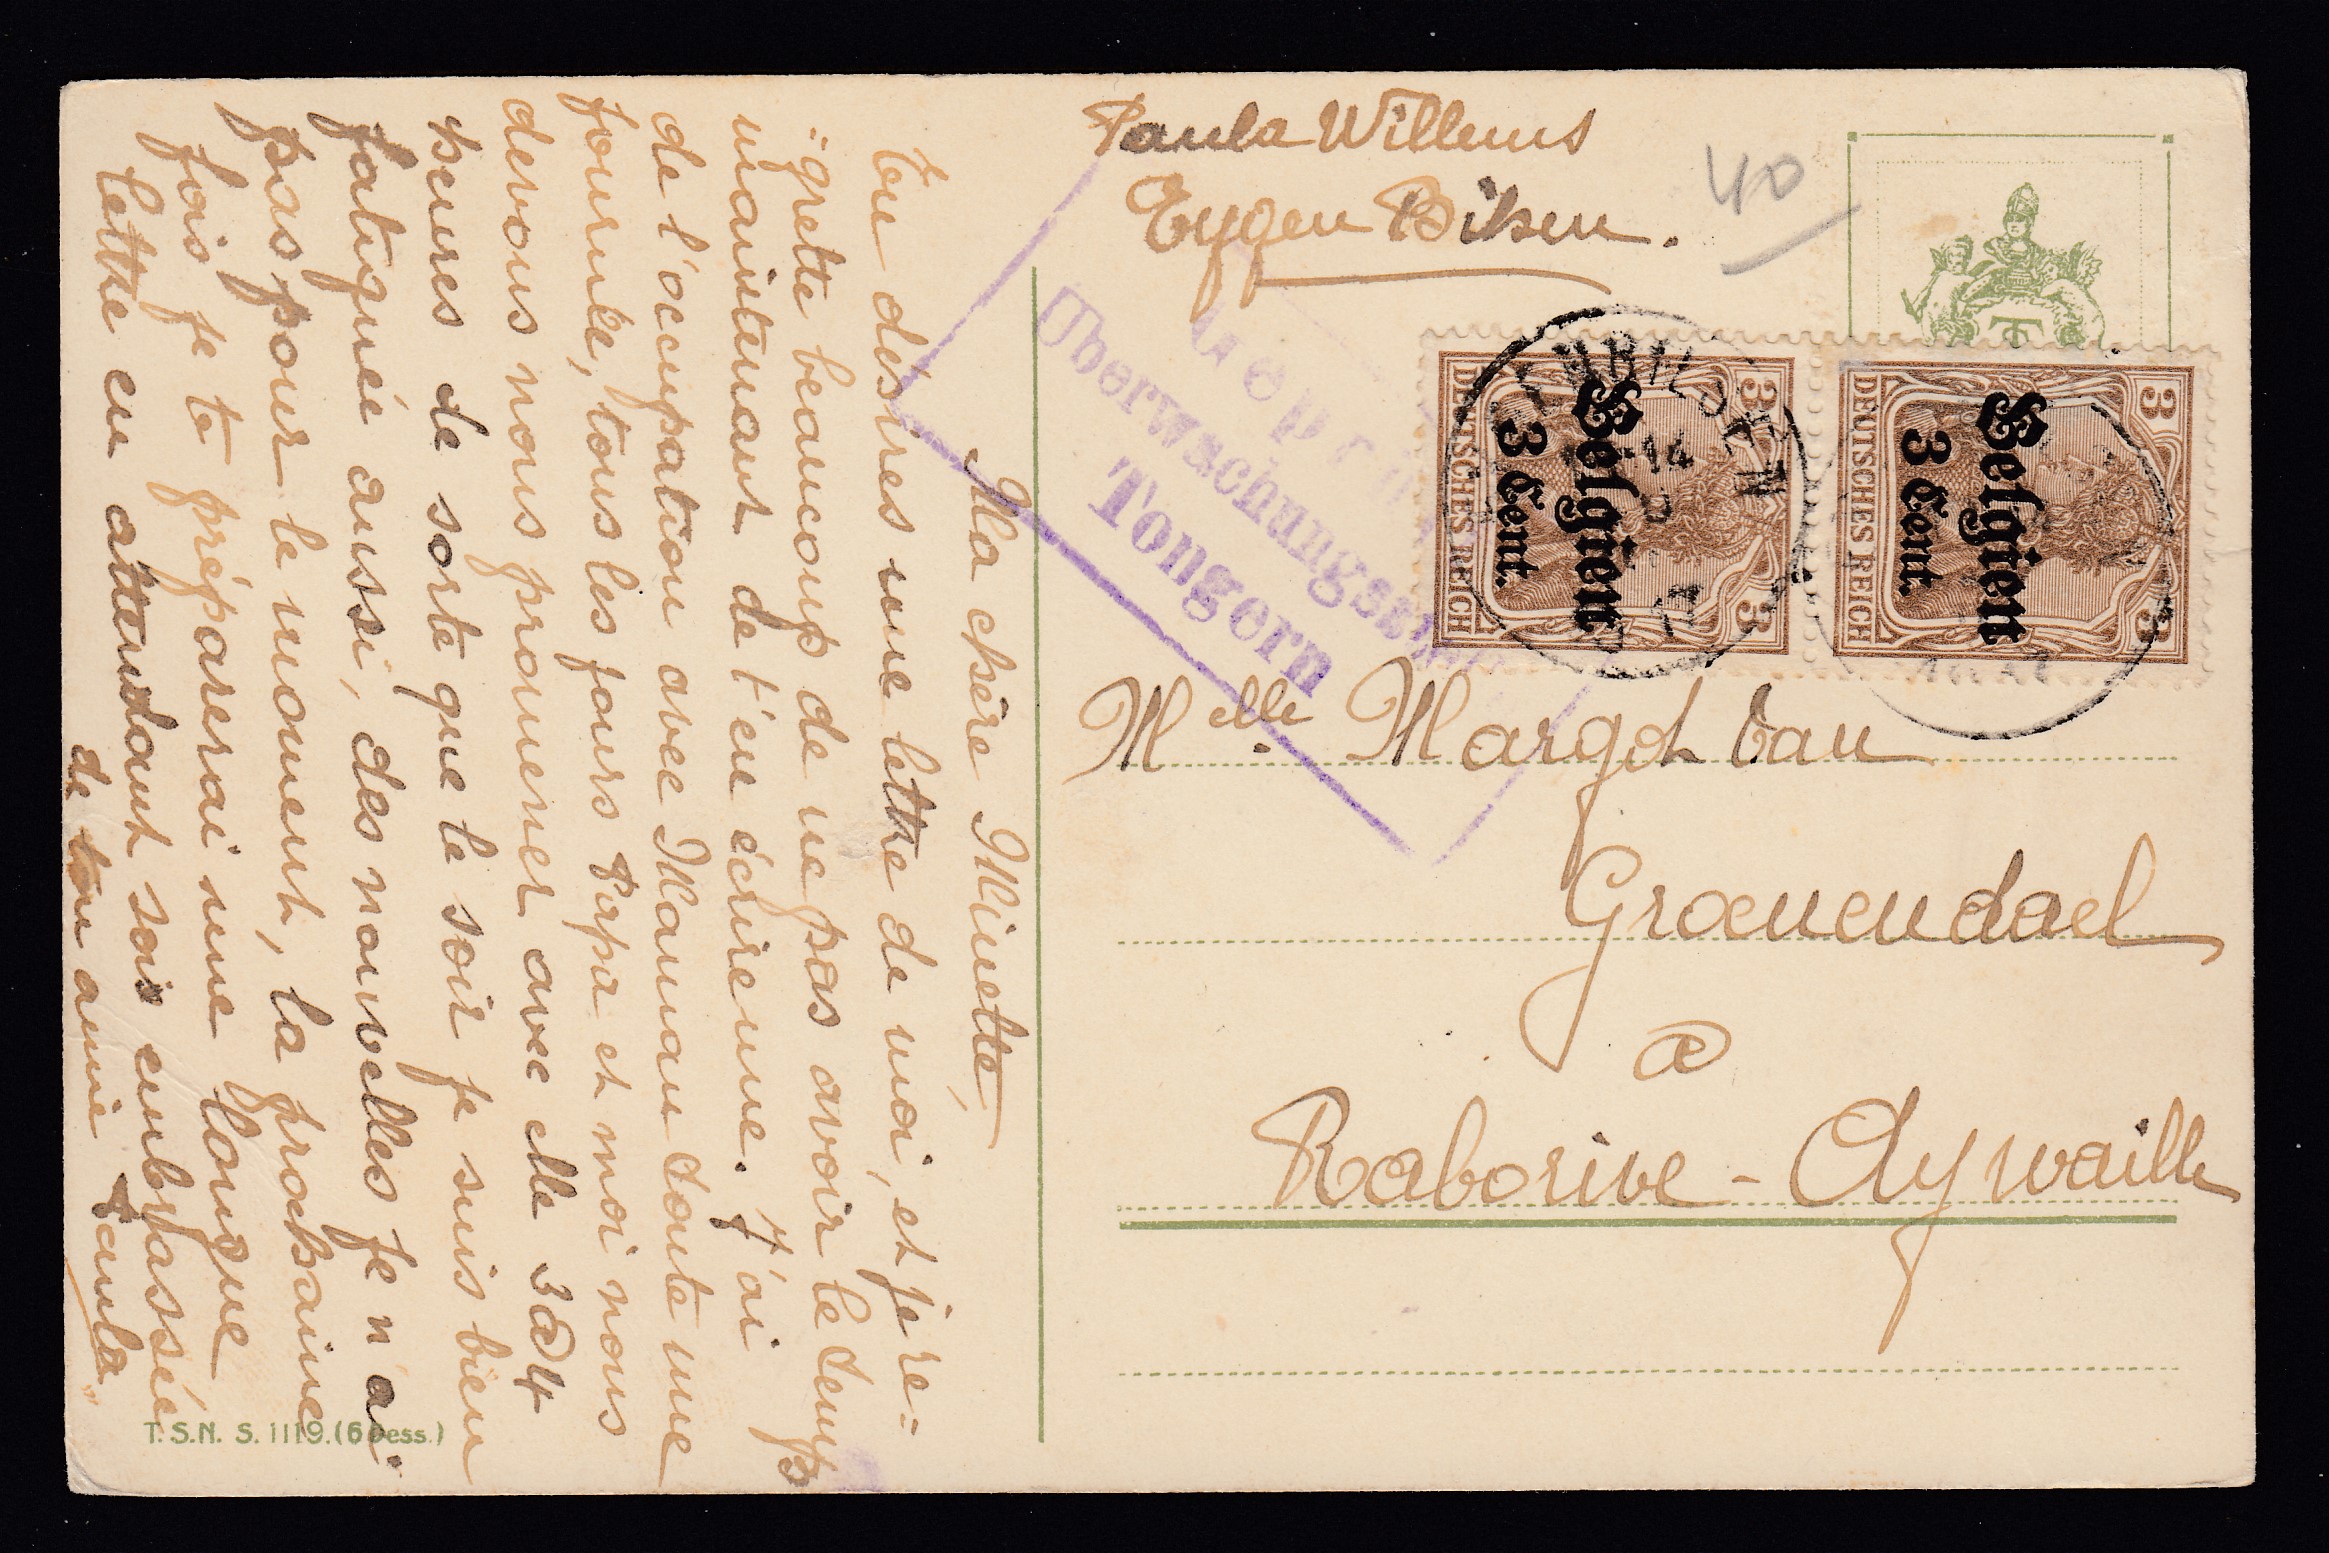 Paula Willems
Eygen Bilsen.
40
Geprüft
Überwachungsstelle
Tongern
BILSEN
14
DEUTSCHES REICH
3
3
Belgien
3 Cent.
DEUTSCHES REICH
3
3
Belgien
3 Cent.
Melle. Margot Van
Groenendael
a
Raborive - Aywaille
Ma chère Minette,
Tu désires une lettre de moi, et je re=
=grette beaucoup de ne pas avoir le temps
maintenant de t'en écrire une. J'ai
de l'occupation avec Maman toute une
journée, tous les jours Papa et moi nous
devons nous promener avec elle 3 a 4
heures de sorte que le soir je suis bien
fatiguée aussi, des nouvelles je n'ai
pas pour le moment, la prochaine
fois je te préparerai une longue
lettre en attendant sois embrassée
de ton amie Paula
T.S.N. S. 1119. (6 Dess.)